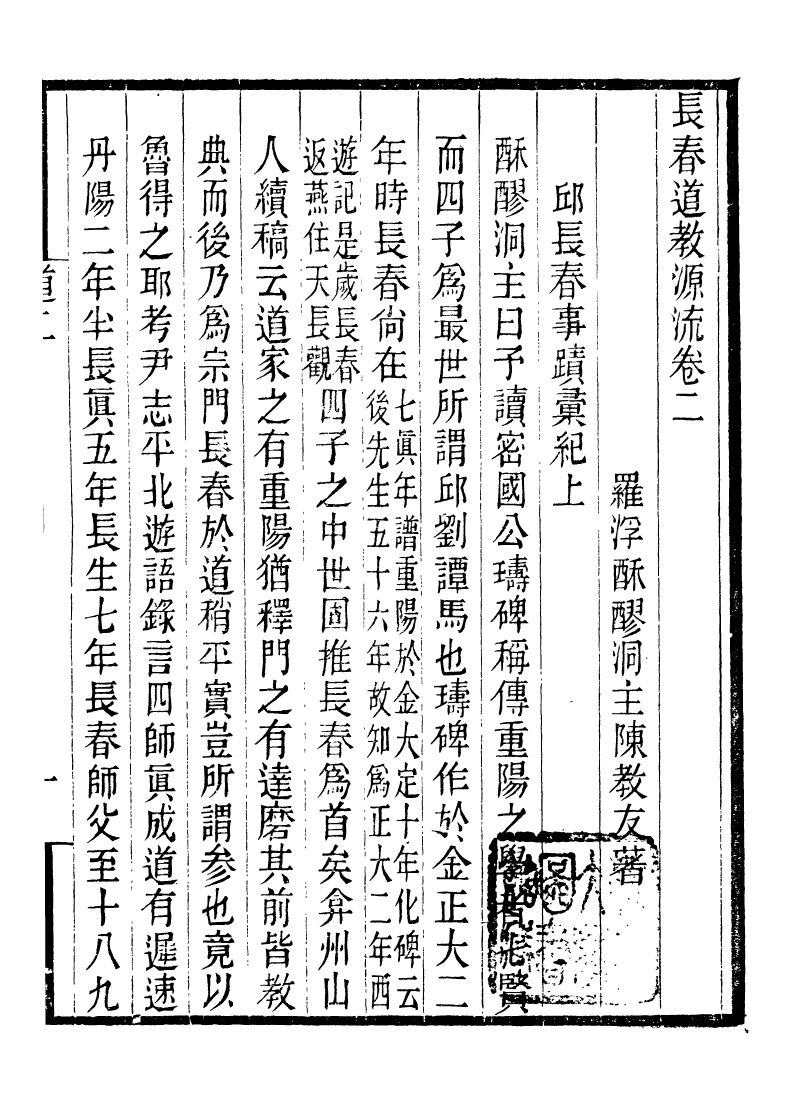 長春道教源流卷二
羅浮酥醪洞主陳教友著
邱長春事蹟彙紀上
酥醪洞主曰予讀密國公璹碑稱傳重陽之學
而四子爲最世所謂邱劉譚馬也璹碑作於金正大二
年時長春尙在七眞年譜重陽於金大定十年化碑云後先生五十六年故知爲正大二年西
遊記是歲長春返燕住天長觀四子之中世固推長春爲首矣弇州山
人續稿云道家之有重陽猶釋門之有達磨其前皆教
典而後乃爲宗門長春於道稍平實豈所謂參也竟以
魯得之耶考尹志平北遊語錄言四師眞成道有遲速
丹陽二年半長眞五年長生七年長春師父至十八九
道二
一